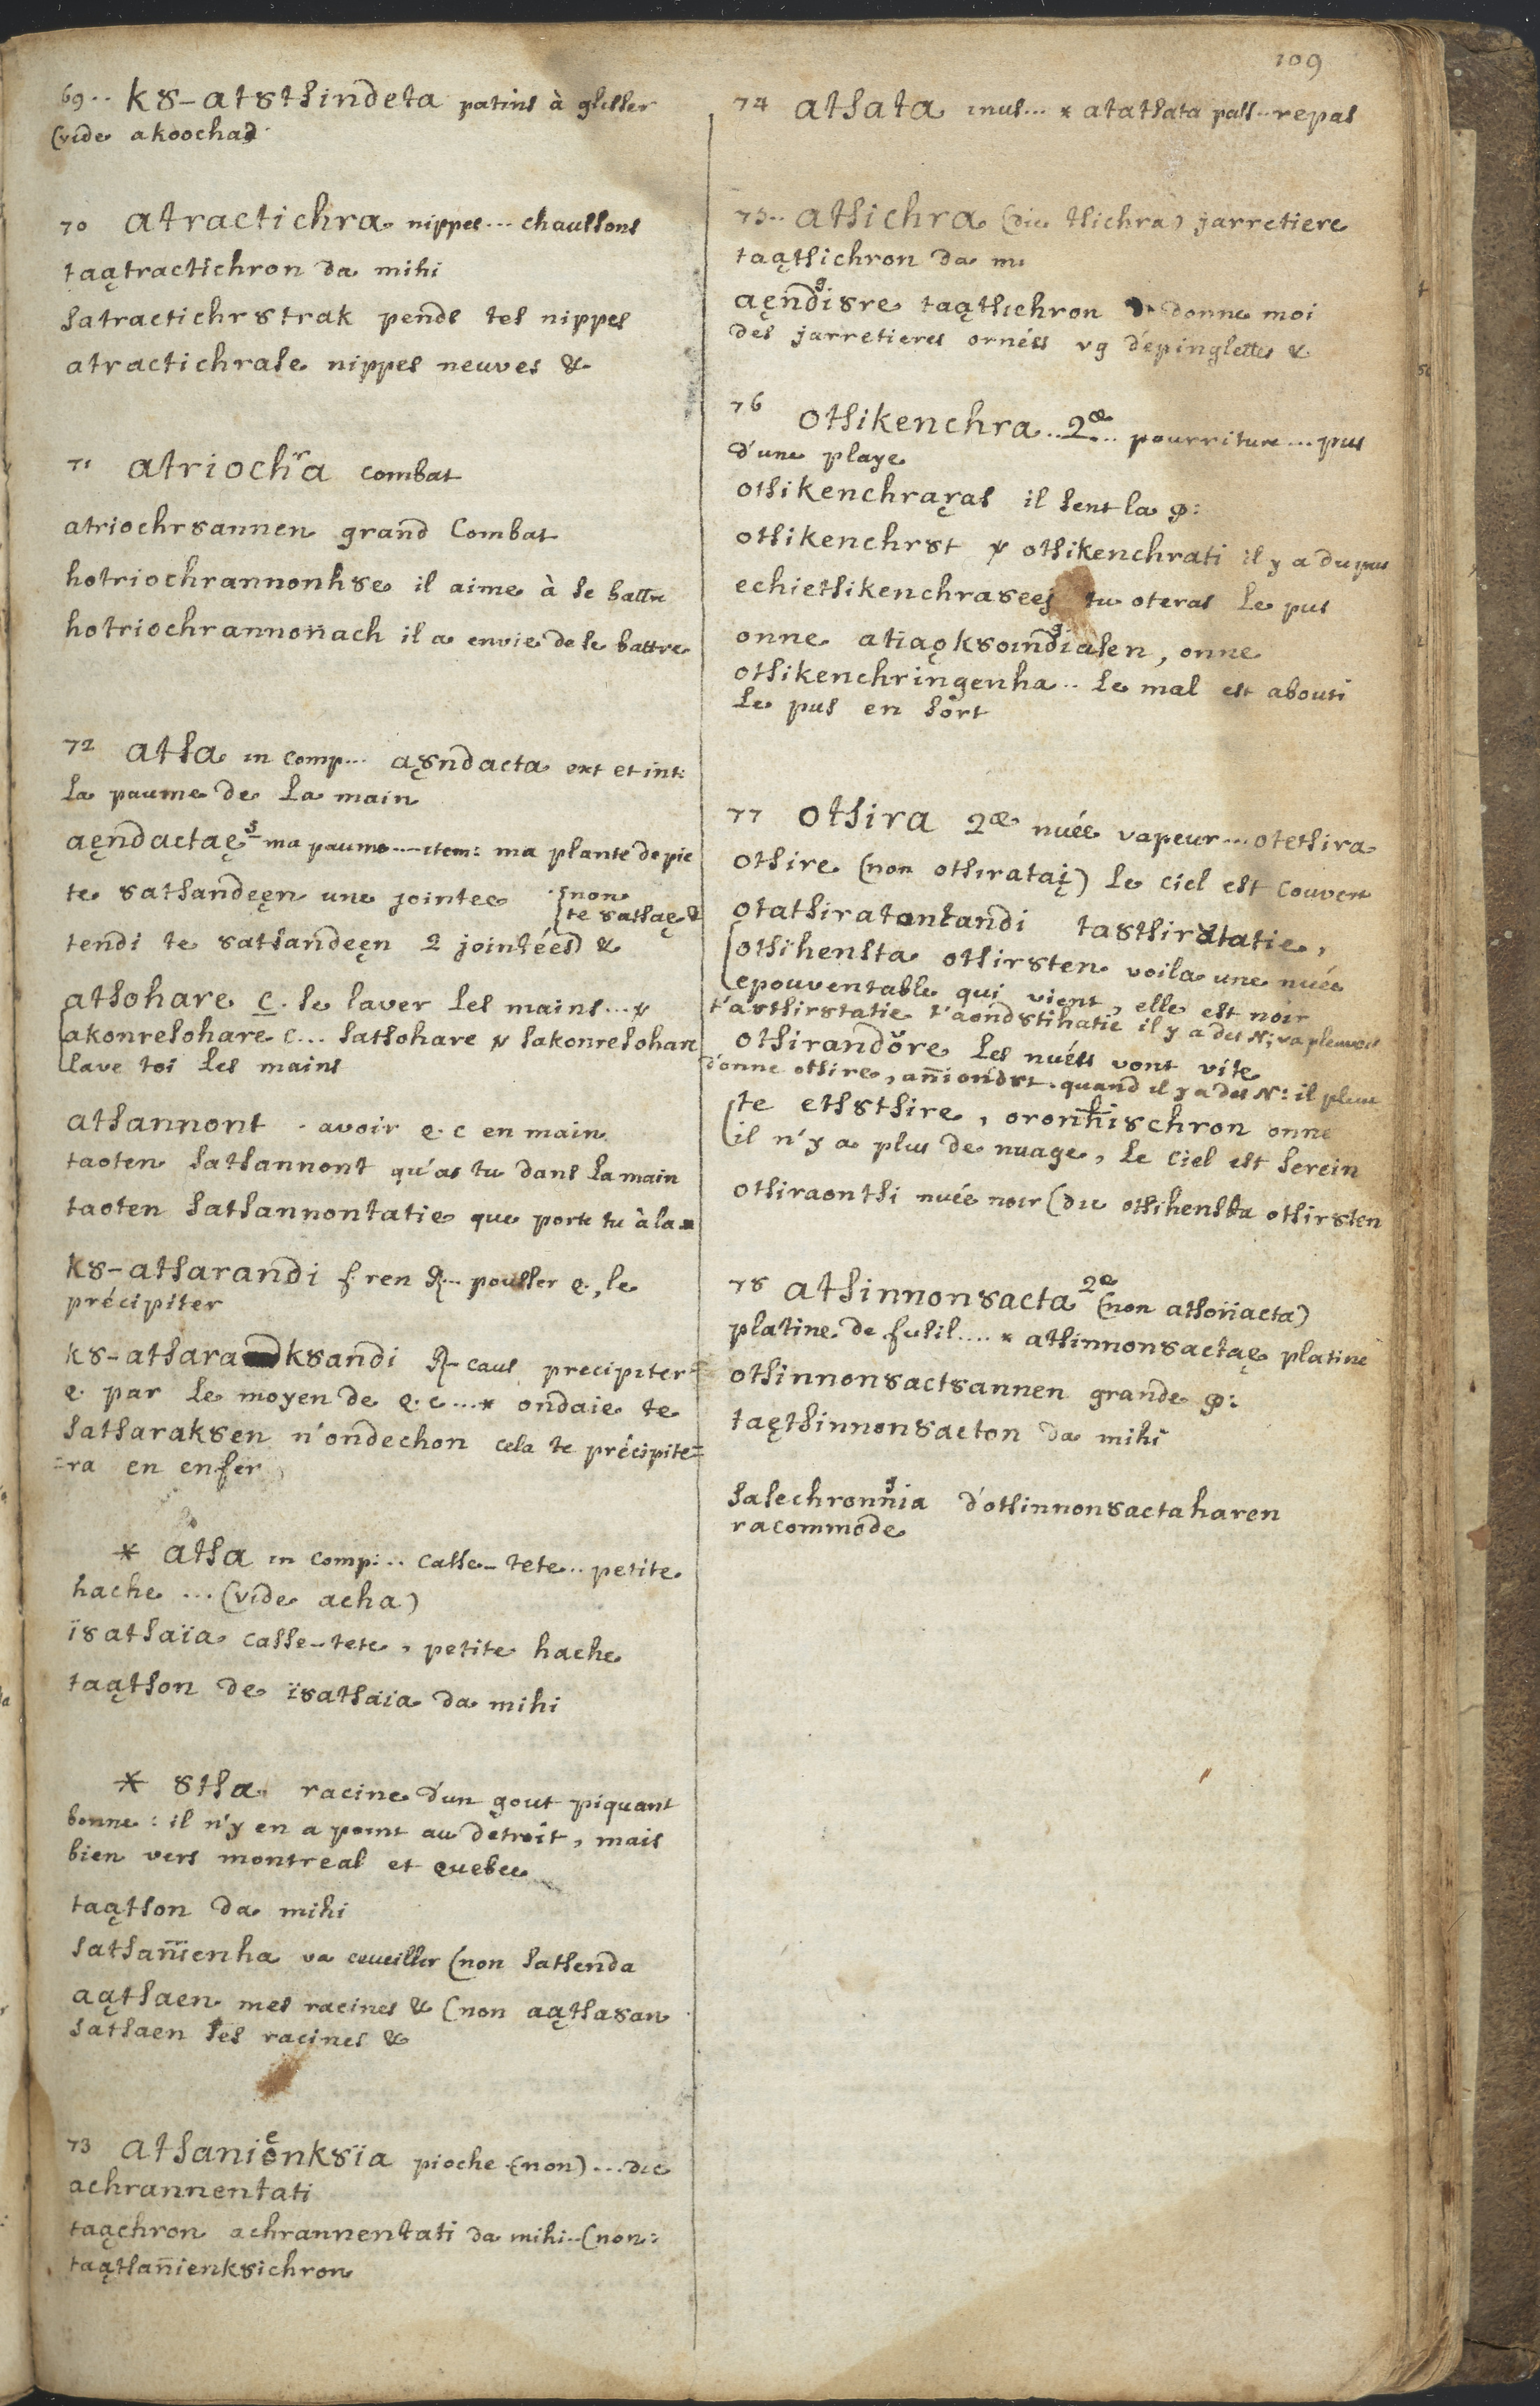 109
69.. k8-at8tsindeta patins à glisser
(vide akoochas
70 atractichra nippes... chaussons
taątractichron da mihi
satractichr8trak pends tes nippes
atractichrase nippes neuves &
71 atriochra combat
atriochr8annen grand Combat
hotriochrannonh8e il aime à se battre
hotriochrannonach il a envie de se battre
72 atsa in comp... aȣ̨ndacta ext et int:
la paume de la main
aęndactaę ma paume ... item: ma plante de pie
te 8atsandeęn une jointee {non
te 8atsaę &
tendi te 8atsandeęn 2 jointées) &
atsohare c. se laver les mains... v
akonresohare c... satsohare v sakonresohare
lave toi les mains
atsannont . avoir q. c en main
taoten satsannont qu'as tu dans la main
taoten satsannontatie que porte tu à la
k8-atsarandi f. ren ... pousser q., le
précipiter
k8-atsara k8andi caus precipiter
q. par le moyen de q. c ...* ondaie te
satsarak8en n'ondechon cela te précipite=
=ra en enfer
* atsa in comp:.. casse-tete.. petite
hache ... (vide acha)
ï8atsaïa casse-tete, petite hache
taątson de ï8atsaïa da mihi
* 8tsa racine d'un gout piquant
bonne: il n'y en a point au détroit, mais
bien vers montreal et quebec
taątson da mihi
satsannienha va ceueillir (non satsenda
aątsaen mes racines & (non aątsa8an
satsaen ses racines &
73 atsanienk8ïa pioche (non) ... dic
achrannentati
taąchron achrannentati da mihi.. (non:
taątsannienk8ichron
74 atsata inus... * atatsata pass.. repas
75.. atsichra (dic tsichra) jarretiere
taątsichron da mi
aęndi8re taątsichron donne moi
des jarretieres ornées vg d'épinglettes &
76 otsikenchra..2æ... pourriture ... pus
d'une playe
otsikenchraɣas il sent la φ:
otsikenchr8t v otsikenchrati il y a du pus
echietsikenchra8eej tu oteras le pus
onne atiaǫk8oindiasen, onne
otsikenchringenha.. le mal est abouti
le pus en sort
77 otsira 2æ nuée vapeur ... otetsira
otsire (non otsirataį) le ciel est couvert
otatsiratontandi ta8tsiratatie,
otsihensta otsir8ten voila une nuée
epouventable qui vient, elle est noir
t'a8tsir8tatie t'aond8tihatie il y a des N; va pleuvoir
otsirandore les nuées vont vite
d'onne otsire, anniond8t. quand il y a des N: il pleut
te ets8tsire, oronhi8chron onne
il n'y a plus de nuage, le ciel est serein
otsiraontsi nuée noir (dic otsihensta otsir8ten
78 atsinnon8acta 2æ (non atsonacta)
platine de fusil.... * atsinnon8actaę platine
otsinnon8act8annen grande φ:
taętsinnon8acton da mihi
sasechronnia d'otsinnon8actaharen
racommode